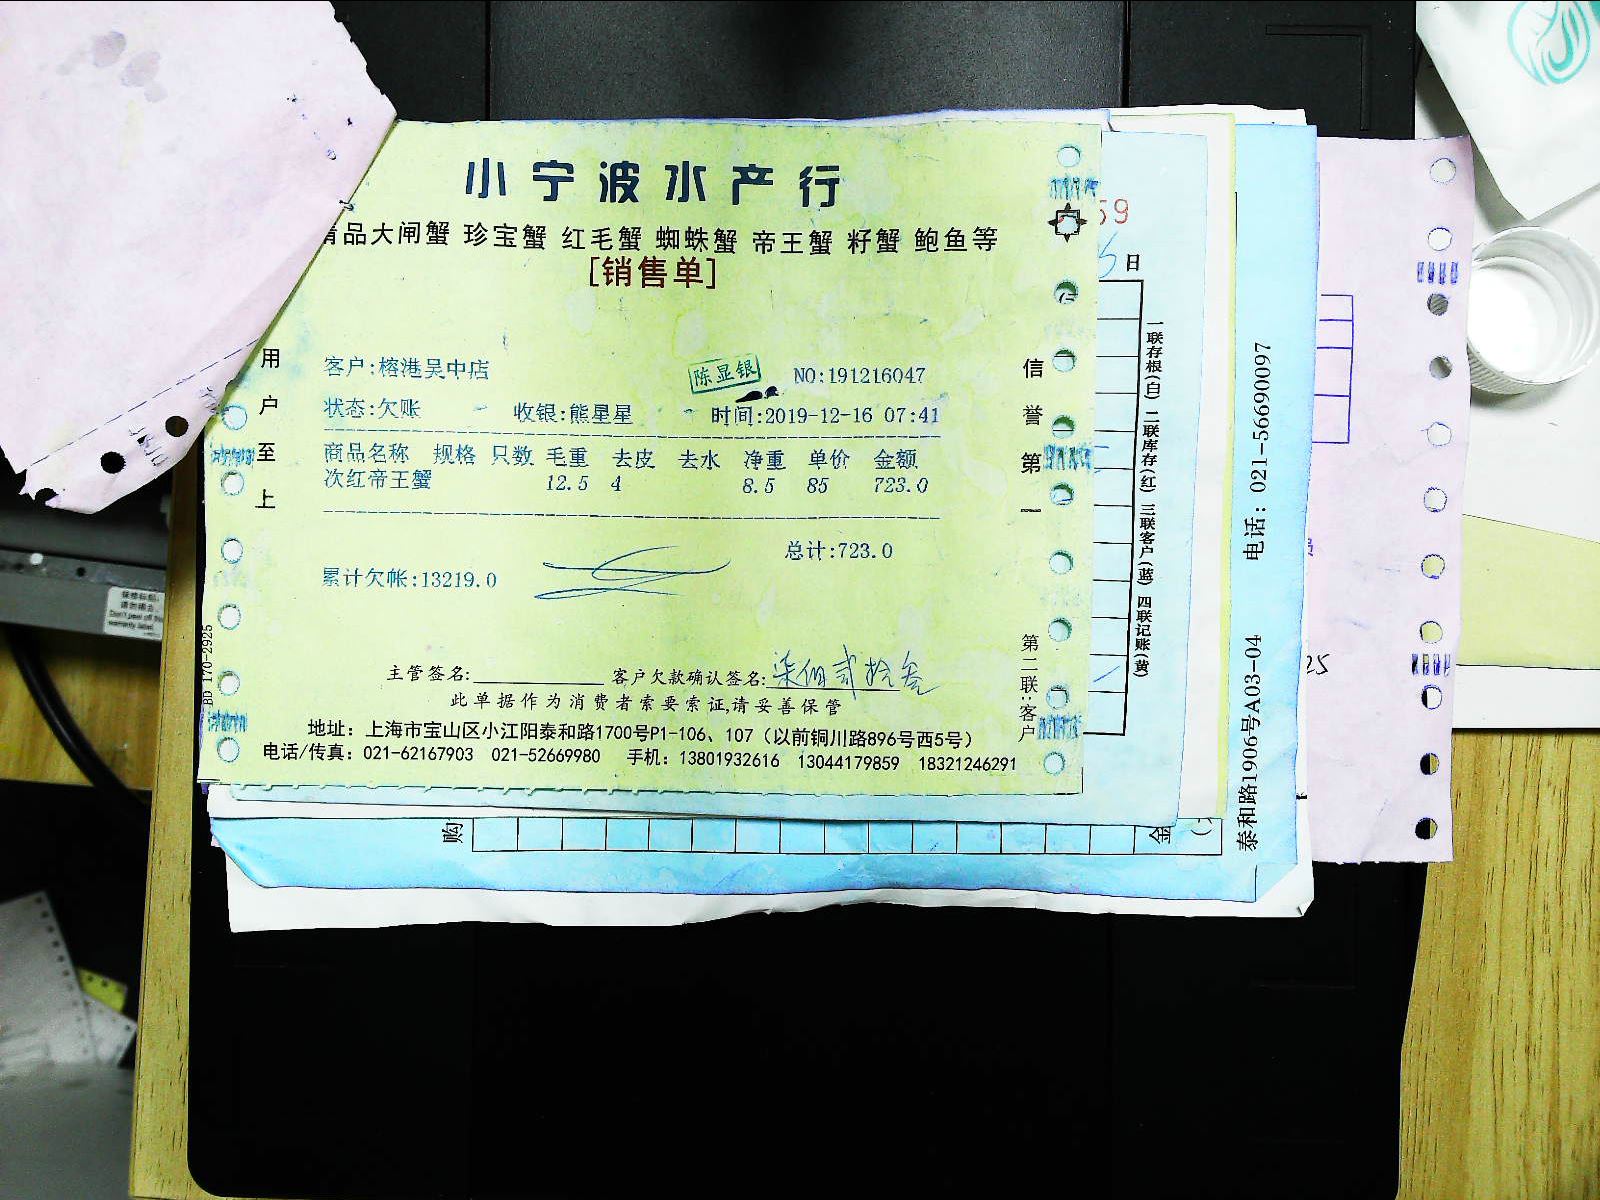 小宁波水产行
精品大闸蟹 珍宝蟹 红毛蟹 蜘蛛蟹 帝王蟹 籽蟹 鲍鱼等
[销售单]
用户至上
信誉第一
客户:榕港吴中店
陈显银
NO:191216047
状态:欠账 收银:熊星星 时间:2019-12-16 07:41
商品名称 规格 只数 毛重 去皮 去水 净重 单价 金额
次红帝王蟹 12.5 4 8.5 85 723.0
总计:723.0
累计欠帐:13219.0
主管签名: 客户欠款确认签名: 柒佰贰拾叁
此单据作为消费者索要索证,请妥善保管
地址：上海市宝山区小江阳泰和路1700号P1-106、107（以前铜川路896号西5号）
电话/传真：021-62167903 021-52669980 手机：13801932616 13044179859 18321246291
BD 170-2925
第二联:客户
59
日
一联存根(白) 二联库存(红) 三联客户(蓝) 四联记账(黄)
泰和路1906号A03-04 电话：021-56690097
购
金
25